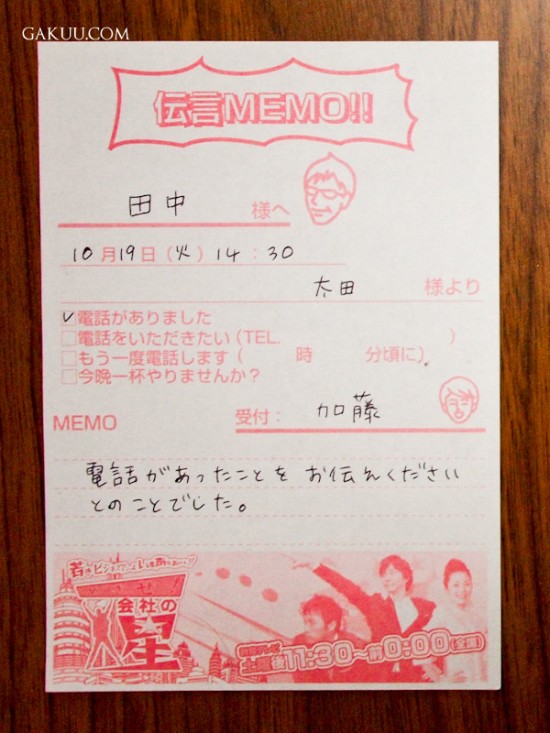 GAKUU.COM
伝言MEMO!!
田中 様へ
10月19日(火) 14:30
太田 様より
✓電話がありました
□電話をいただきたい(TEL. )
□もう一度電話します( 時 分頃に)
□今晩一杯やりませんか?
MEMO 受付: 加藤
電話があったことをお伝えください
とのことでした。
めざせ!
会社の星
教育テレビ
土曜後11:30~前0:00(全国)